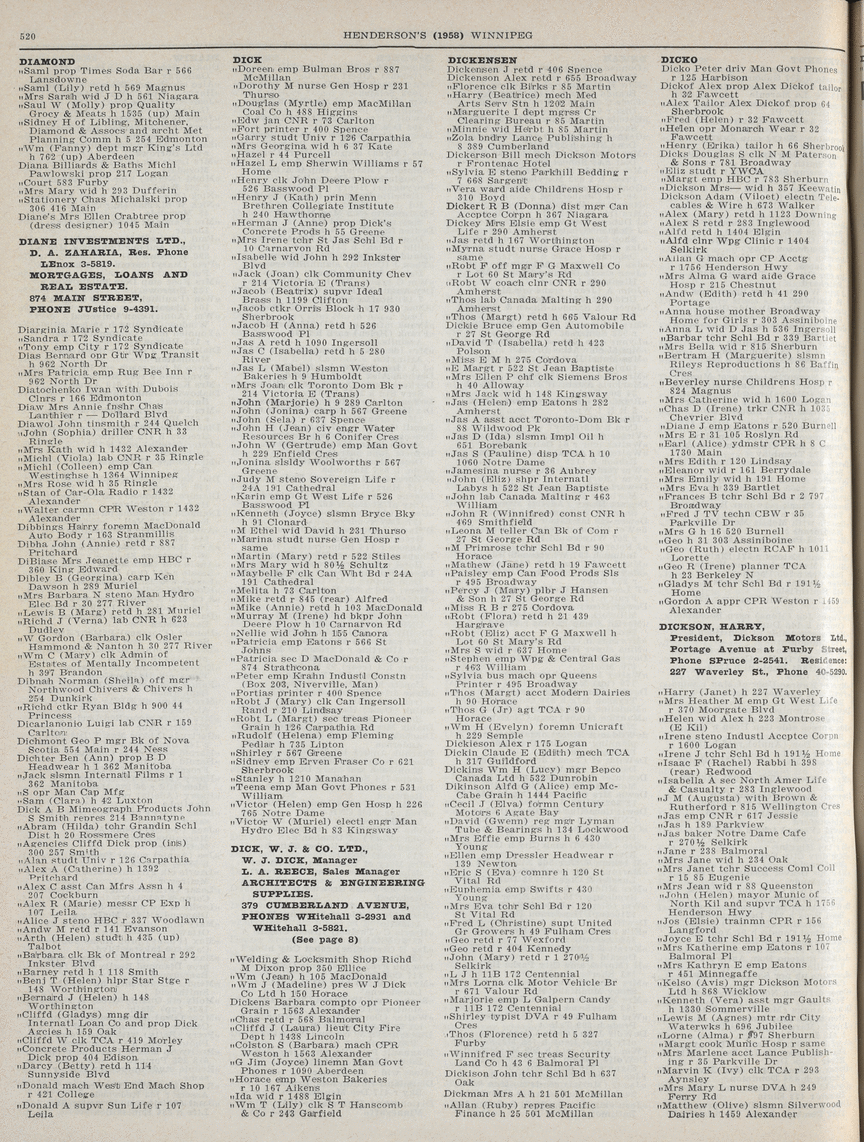 520
HENDERSON'S (1958) WINNIPEG
DIAMOND
„Saml prop Times Soda Bar r 566
Lansdowne
„Saml (Lily) retd h 569 Magnus
„Mrs Sarah wid J D h 561 Niagara
„Saul W (Molly) prop Quality
Grocy & Meats h 1535 (up) Main
„Sidney H of Libling, Mitchener,
Diamond & Assocs and archt Met
Planning Comm h 5 254 Edmonton
„Wm (Fanny) dept mgr King's Ltd
h 762 (up) Aberdeen
Diana Billiards & Baths Michl
Pawlowski prop 217 Logan
„Court 583 Furby
„Mrs Mary wid h 293 Dufferin
„Stationery Chas Michalski prop
306 416 Main
Diane's Mrs Ellen Crabtree prop
(dress designer) 1045 Main
DIANE INVESTMENTS LTD.,
D. A. ZAHARIA, Res. Phone
LEnox 3-5819.
MORTGAGES, LOANS AND
REAL ESTATE.
874 MAIN STREET,
PHONE JUstice 9-4391.
Diarginia Marie r 172 Syndicate
„Sandra r 172 Syndicate
„Tony emp City r 172 Syndicate
Dias Bernard opr Gtr Wpg Transit
h 962 North Dr
„Mrs Patricia emp Rug Bee Inn r
962 North Dr
Diatochenko Iwan with Dubois
Clnrs r 166 Edmonton
Diaw Mrs Annie fnshr Chas
Lanthier r — Dollard Blvd
Diawol John tinsmith r 244 Quelch
„John (Sophia) driller CNR h 33
Ringle
„Mrs Kath wid h 1432 Alexander
„Michl (Viola) lab CNR r 35 Ringle
„Michl (Colleen) emp Can
Westinghse h 1364 Winnipeg
„Mrs Rose wid h 35 Ringle
„Stan of Car-Ola Radio r 1432
Alexander
„Walter carmn CPR Weston r 1432
Alexander
Dibbings Harry foremn MacDonald
Auto Body r 163 Stranmillis
Dibha John (Annie) retd r 887
Pritchard
DiBiase Mrs Jeanette emp HBC r
360 King Edward
Dibley B (Georgina) carp Ken
Dawson h 289 Muriel
„Mrs Barbara N steno Man Hydro
Elec Bd r 30 277 River
„Lewis B (Marg) retd h 281 Muriel
„Richd J (Verna) lab CNR h 623
Dudley
„W Gordon (Barbara) clk Osler
Hammond & Nanton h 30 277 River
„Wm C (Mary) clk Admin of
Estates of Mentally Incompetent
h 397 Brandon
Dibnah Norman (Sheila) off mgr
Northwood Chivers & Chivers h
254 Dunkirk
„Richd ctkr Ryan Bldg h 900 44
Princess
Dicarlanonio Luigi lab CNR r 159
Carlton
Dichmont Geo P mgr Bk of Nova
Scotia 554 Main r 244 Ness
Dichter Ben (Ann) prop B D
Headwear h 1 362 Manitoba
„Jack slsmn Internatl Films r 1
362 Manitoba
„S opr Man Cap Mfg
„Sam (Clara) h 42 Luxton
Dick A B Mimeograph Products John
S Smith repres 214 Bannatyne
„Abram (Hilda) tchr Grandin Schl
Dist h 20 Rossmere Cres
„Agencies Cliffd Dick prop (ins)
300 257 Smith
„Alan studt Univ r 126 Carpathia
„Alex A (Catherine) h 1392
Pritchard
„Alex C asst Can Mfrs Assn h 4
207 Cockburn
„Alex R (Marie) messr CP Exp h
107 Leila
„Alice J steno HBC r 337 Woodlawn
„Andw M retd r 141 Evanson
„Arth (Helen) studt h 435 (up)
Talbot
„Barbara clk Bk of Montreal r 292
Inkster Blvd
„Barney retd h 1 118 Smith
„Benj T (Helen) hlpr Star Stge r
148 Worthington
„Bernard J (Helen) h 148
Worthington
„Cliffd (Gladys) mng dir
Internatl Loan Co and prop Dick
Agcies h 159 Oak
„Cliffd W clk TCA r 419 Morley
„Concrete Products Herman J
Dick prop 404 Edison
„Darcy (Betty) retd h 114
Sunnyside Blvd
„Donald mach West End Mach Shop
r 421 College
„Donald A supvr Sun Life r 107
Leila
DICK
„Doreen emp Bulman Bros r 887
McMillan
„Dorothy M nurse Gen Hosp r 231
Thurso
„Douglas (Myrtle) emp MacMillan
Coal Co h 488 Higgins
„Edw jan CNR r 73 Carlton
„Fort printer r 400 Spence
„Garry studt Univ r 126 Carpathia
„Mrs Georgina wid h 6 37 Kate
„Hazel r 44 Purcell
„Hazel L emp Sherwin Williams r 57
Home
„Henry clk John Deere Plow r
526 Basswood Pl
„Henry J (Kath) prin Menn
Brethren Collegiate Institute
h 240 Hawthorne
„Herman J (Anne) prop Dick's
Concrete Prods h 55 Greene
„Mrs Irene tchr St Jas Schl Bd r
10 Carnarvon Rd
„Isabelle wid John h 292 Inkster
Blvd
„Jack (Joan) clk Community Chev
r 214 Victoria E (Trans)
„Jacob (Beatrix) supvr Ideal
Brass h 1199 Clifton
„Jacob ctkr Orris Block h 17 930
Sherbrook
„Jacob H (Anna) retd h 526
Basswood Pl
„Jas A retd h 1090 Ingersoll
„Jas C (Isabella) retd h 5 280
River
„Jas L (Mabel) slsmn Weston
Bakeries h 9 Humboldt
„Mrs Joan clk Toronto Dom Bk r
214 Victoria E (Trans)
„John (Marjorie) h 9 289 Carlton
„John (Jonina) carp h 567 Greene
„John (Sela) r 637 Spence
„John H (Jean) civ engr Water
Resources Br h 6 Conifer Cres
„John W (Gertrude) emp Man Govt
h 229 Enfield Cres
„Jonina slsldy Woolworths r 567
Greene
„Judy M steno Sovereign Life r
24A 191 Cathedral
„Karin emp Gt West Life r 526
Basswood Pl
„Kenneth (Joyce) slsmn Bryce Bky
h 91 Clonard
„M Ethel wid David h 231 Thurso
„Marina studt nurse Gen Hosp r
same
„Martin (Mary) retd r 522 Stiles
„Mrs Mary wid h 80½ Schultz
„Maybelle F clk Can Wht Bd r 24A
191 Cathedral
„Melita h 73 Carlton
„Mike retd r 845 (rear) Alfred
„Mike (Annie) retd h 103 MacDonald
„Murray M (Irene) hd bkpr John
Deere Plow h 10 Carnarvon Rd
„Nellie wid John h 155 Canora
„Patricia emp Eatons r 566 St
Johns
„Patricia sec D MacDonald & Co r
874 Strathcona
„Peter emp Krahn Industl Constn
(Box 203, Niverville, Man)
„Portias printer r 400 Spence
„Robt J (Mary) clk Can Ingersoll
Rand r 210 Lindsay
„Robt L (Margt) sec treas Pioneer
Grain h 126 Carpathia Rd
„Rudolf (Helena) emp Fleming
Pedlar h 735 Lipton
„Shirley r 567 Greene
„Sidney emp Erven Fraser Co r 621
Sherbrook
„Stanley h 1210 Manahan
„Teena emp Man Govt Phones r 531
William
„Victor (Helen) emp Gen Hosp h 226
765 Notre Dame
„Victor W (Muriel) electl engr Man
Hydro Elec Bd h 83 Kingsway
DICK, W. J. & CO. LTD.,
W. J. DICK, Manager
L. A. REECE, Sales Manager
ARCHITECTS & ENGINEERING
SUPPLIES.
379 CUMBERLAND AVENUE,
PHONES WHitehall 3-2931 and
WHitehall 3-5821.
(See page 8)
„Welding & Locksmith Shop Richd
M Dixon prop 350 Ellice
„Wm (Jean) h 105 MacDonald
„Wm J (Madeline) pres W J Dick
Co Ltd h 150 Horace
Dickens Barbara compto opr Pioneer
Grain r 1563 Alexander
„Chas retd r 568 Balmoral
„Cliffd J (Laura) lieut City Fire
Dept h 1438 Lincoln
„Colston S (Barbara) mach CPR
Weston h 1563 Alexander
„G Jim (Joyce) linemn Man Govt
Phones r 1090 Aberdeen
„Horace emp Weston Bakeries
r 10 167 Aikens
„Ida wid r 1488 Elgin
„Wm T (Lily) clk S T Hanscomb
& Co r 243 Garfield
DICKENSEN
Dickensen J retd r 406 Spence
Dickenson Alex retd r 655 Broadway
„Florence clk Birks r 85 Martin
„Harry (Beatrice) mech Med
Arts Serv Stn h 1202 Main
„Marguerite I dept mgress Cr
Clearing Bureau r 85 Martin
„Minnie wid Herbt h 85 Martin
„Zola bndry Lance Publishing h
8 389 Cumberland
Dickerson Bill mech Dickson Motors
r Frontenac Hotel
„Sylvia E steno Parkhill Bedding r
7 668 Sargent
„Vera ward aide Childrens Hosp r
310 Boyd
Dickert R B (Donna) dist mgr Can
Accptce Corpn h 367 Niagara
Dickey Mrs Elsie emp Gt West
Life r 290 Amherst
„Jas retd h 167 Worthington
„Myrna studt nurse Grace Hosp r
same
„Robt F off mgr F G Maxwell Co
r Lot 60 St Mary's Rd
„Robt W coach clnr CNR r 290
Amherst
„Thos lab Canada Malting h 290
Amherst
„Thos (Margt) retd h 665 Valour Rd
Dickie Bruce emp Gen Automobile
r 27 St George Rd
„David T (Isabella) retd h 423
Polson
„Miss E M h 275 Cordova
„E Margt r 522 St Jean Baptiste
„Mrs Ellen P chf clk Siemens Bros
h 40 Alloway
„Mrs Jack wid h 148 Kingsway
„Jas (Helen) emp Eatons h 282
Amherst
„Jas A asst acct Toronto-Dom Bk r
88 Wildwood Pk
„Jas D (Ida) slsmn Impl Oil h
651 Borebank
„Jas S (Pauline) disp TCA h 10
1060 Notre Dame
„Jamesina nurse r 36 Aubrey
„John (Eliz) shpr Internatl
Labys h 522 St Jean Baptiste
„John lab Canada Malting r 463
William
„John R (Winnifred) const CNR h
469 Smithfield
„Leona M teller Can Bk of Com r
27 St George Rd
„M Primrose tchr Schl Bd r 90
Horace
„Mathew (Jane) retd h 19 Fawcett
„Paisley emp Can Food Prods Sls
r 495 Broadway
„Percy J (Mary) plbr J Hansen
& Son h 27 St George Rd
„Miss R B r 275 Cordova
„Robt (Flora) retd h 21 439
Hargrave
„Robt (Eliz) acct F G Maxwell h
Lot 60 St Mary's Rd
„Mrs S wid r 637 Home
„Stephen emp Wpg & Central Gas
r 463 William
„Sylvia bus mach opr Queens
Printer r 495 Broadway
„Thos (Margt) acct Modern Dairies
h 90 Horace
„Thos G (Jr) agt TCA r 90
Horace
„Wm H (Evelyn) foremn Unicraft
h 229 Semple
Dickieson Alex r 175 Logan
Dickin Claude E (Edith) mech TCA
h 317 Guildford
Dickins Wm H (Lucy) mgr Bepco
Canada Ltd h 532 Dunrobin
Dickinson Alfd G (Alice) emp Mc-
Cabe Grain h 1444 Pacific
„Cecil J (Elva) formn Century
Motors 6 Agate Bay
„David (Gwenn) reg mgr Lyman
Tube & Bearings h 134 Lockwood
„Mrs Effie emp Burns h 6 430
Young
„Ellen emp Dressler Headwear r
139 Newton
„Eric S (Eva) comnre h 120 St
Vital Rd
„Euphemia emp Swifts r 430
Young
„Mrs Eva tchr Schl Bd r 120
St Vital Rd
„Fred L (Christine) supt United
Gr Growers h 49 Fulham Cres
„Geo retd r 77 Wexford
„Geo retd r 404 Kennedy
„John (Mary) rd r 1 270½
Selkirk
„L J h 11B 172 Centennial
„Mrs Lorna clk Motor Vehicle Br
r 671 Valour Rd
„Marjorie emp L Galpern Candy
r 11B 172 Centennial
„Shirley typist DVA r 49 Fulham
Cres
„Thos (Florence) retd h 5 327
Furby
„Winnifred F sec treas Security
Land Co h 43 6 Balmoral Pl
Dickison John tchr Schl Bd h 637
Oak
Dickman Mrs A h 21 501 McMillan
„Allan (Ruby) repres Pacific
Finance h 25 501 McMillan
DICKO
Dicko Peter driv Man Govt Phones
r 125 Harbison
Dickof Alex prop Alex Dickof tailor
h 32 Fawcett
„Alex Tailor Alex Dickof prop 64
Sherbrook
„Fred (Helen) r 32 Fawcett
„Helen opr Monarch Wear r 32
Fawcett
„Henry (Erika) tailor h 66 Sherbrook
Dicks Douglas S clk N M Paterson
& Sons r 781 Broadway
„Eliz studt r YWCA
„Margt emp HBC r 783 Sherburn
„Dickson Mrs— wid h 357 Keewatin
Dickson Adam (Viloet) electn Tele-
cables & Wire h 673 Walker
„Alex (Mary) retd h 1123 Downing
„Alex S retd r 283 Inglewood
„Alfd retd h 1404 Elgin
„Alfd clnr Wpg Clinic r 1404
Selkirk
„Allan G mach opr CP Acctg
r 1756 Henderson Hwy
„Mrs Alma G ward aide Grace
Hosp r 215 Chestnut
„Andw (Edith) retd h 41 290
Portage
„Anna house mother Broadway
Home for Girls r 303 Assiniboine
„Anna L wid D Jas h 536 Ingersoll
„Barbar tchr Schl Bd r 339 Bartlet
„Mrs Bella wid r 815 Sherburn
„Bertram H (Marguerite) slsmn
Rileys Reproductions h 86 Baffin
Cres
„Beverley nurse Childrens Hosp r
824 Magnus
„Mrs Catherine wid h 1600 Logan
„Chas D (Irene) trkr CNR h 1035
Chevrier Blvd
„Diane J emp Eatons r 520 Burnell
„Mrs E r 31 105 Roslyn Rd
„Earl (Alice) ydmstr CPR h 8 C
1730 Main
„Mrs Edith r 120 Lindsay
„Eleanor wid r 161 Berrydale
„Mrs Emily wid h 191 Home
„Mrs Eva h 339 Bartlet
„Frances B tchr Schl Bd r 2 797
Broadway
„Fred J TV techn CBW r 35
Parkville Dr
„Mrs G h 16 520 Burnell
„Geo h 31 303 Assiniboine
„Geo (Ruth) electn RCAF h 1011
Lorette
„Geo R (Irene) planner TCA
h 23 Berkeley N
„Gladys M tchr Schl Bd r 191½
Home
„Gordon A appr CPR Weston r 1459
Alexander
DICKSON, HARRY,
President, Dickson Motors Ltd.,
Portage Avenue at Furby Street,
Phone SPruce 2-2541. Residence:
227 Waverley St., Phone 40-5290.
„Harry (Janet) h 227 Waverley
„Mrs Heather M emp Gt West Life
r 370 Moorgate Blvd
„Helen wid Alex h 223 Montrose
(E Kil)
„Irene steno Industl Accptce Corpn
r 1600 Logan
„Irene J tchr Schl Bd h 191½ Home
„Isaac F (Rachel) Rabbi h 398
(rear) Redwood
„Isabella A sec North Amer Life
& Casualty r 283 Inglewood
„J M (Augusta) with Brown &
Rutherford r 815 Wellington Cres
„Jas emp CNR r 617 Jessie
„Jas h 189 Parkview
„Jas baker Notre Dame Cafe
r 270½ Selkirk
„Jane r 238 Balmoral
„Mrs Jane wid h 234 Oak
„Mrs Janet tchr Success Coml Coll
r 15 85 Eugenie
„Mrs Jean wid r 88 Queenston
„John (Helen) mayor Munic of
North Kil and supvr TCA h 1756
Henderson Hwy
„Jos (Elsie) trainmn CPR r 156
Langford
„Joyce E tchr Schl Bd r 191½ Home
„Mrs Katherine emp Eatons r 107
Balmoral Pl
„Mrs Kathryn E emp Eatons
r 451 Minnegaffe
„Kelso (Avis) mgr Dickson Motors
Ltd h 868 Wicklow
„Kenneth (Vera) asst mgr Gaults
h 1330 Sommerville
„Lewis M (Agnes) mtr rdr City
Waterwks h 696 Jubilee
„Lorne (Alma) r 797 Sherburn
„Margt cook Munic Hosp r same
„Mrs Marlene acct Lance Publish-
ing r 35 Parkville Dr
„Marvin K (Ivy) clk TCA r 293
Aynsley
„Mrs Mary L nurse DVA h 249
Ferry Rd
„Matthew (Olive) slsmn Silverwood
Dairies h 1459 Alexander